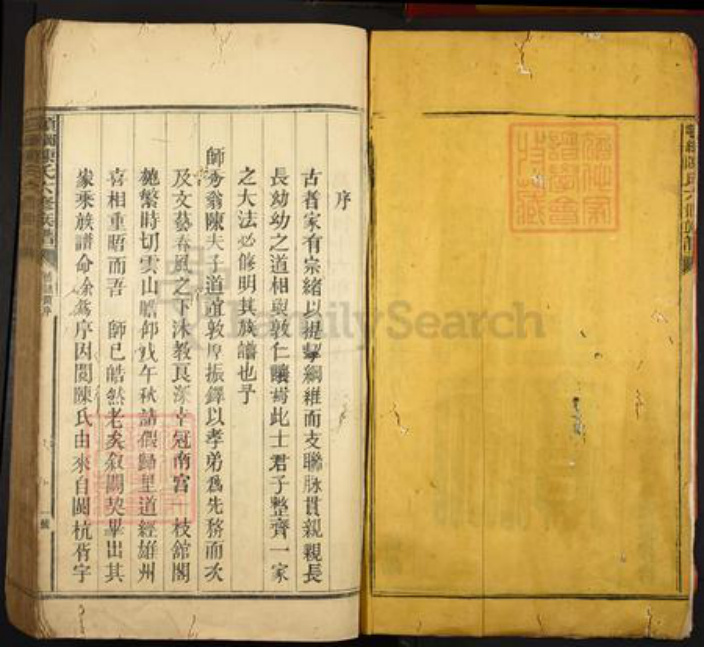 序
古者家有宗緒以提挈綱維而支聯脉貫親親長
長幼幼之道相與敦仁讓焉此士君子整齊一家
之大法必修明其族譜也予
師秀翁陳夫子道誼敦厚振鐸以孝弟為先務而次
及文藝春風之下沐教良深 冠南宮 枝館閣
施繫時切雲山瞻仰戊午秋請假歸里道經雄州
喜相重晤而吾 師已皓然老矣叙闊契畢出其
家乘族譜命余為序因閱陳氏由來自閩杭胥宇
氏六修族譜
FamilySearch